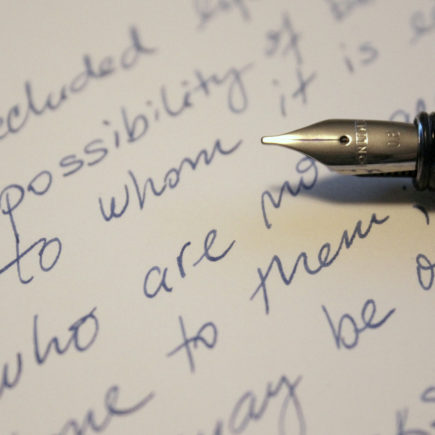 ecluded
possibility of
to whom it is
who are no
me to them
may be